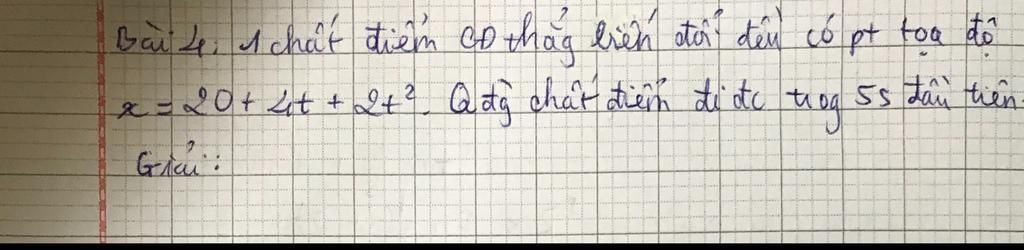 Bài 4: 1 chất điểm CĐ thẳg biến đổi đều có pt toạ độ
x = 20 + 4t + 2t². Qđg chất điểm đi đc trog 5s đầu tiên.
Giải: